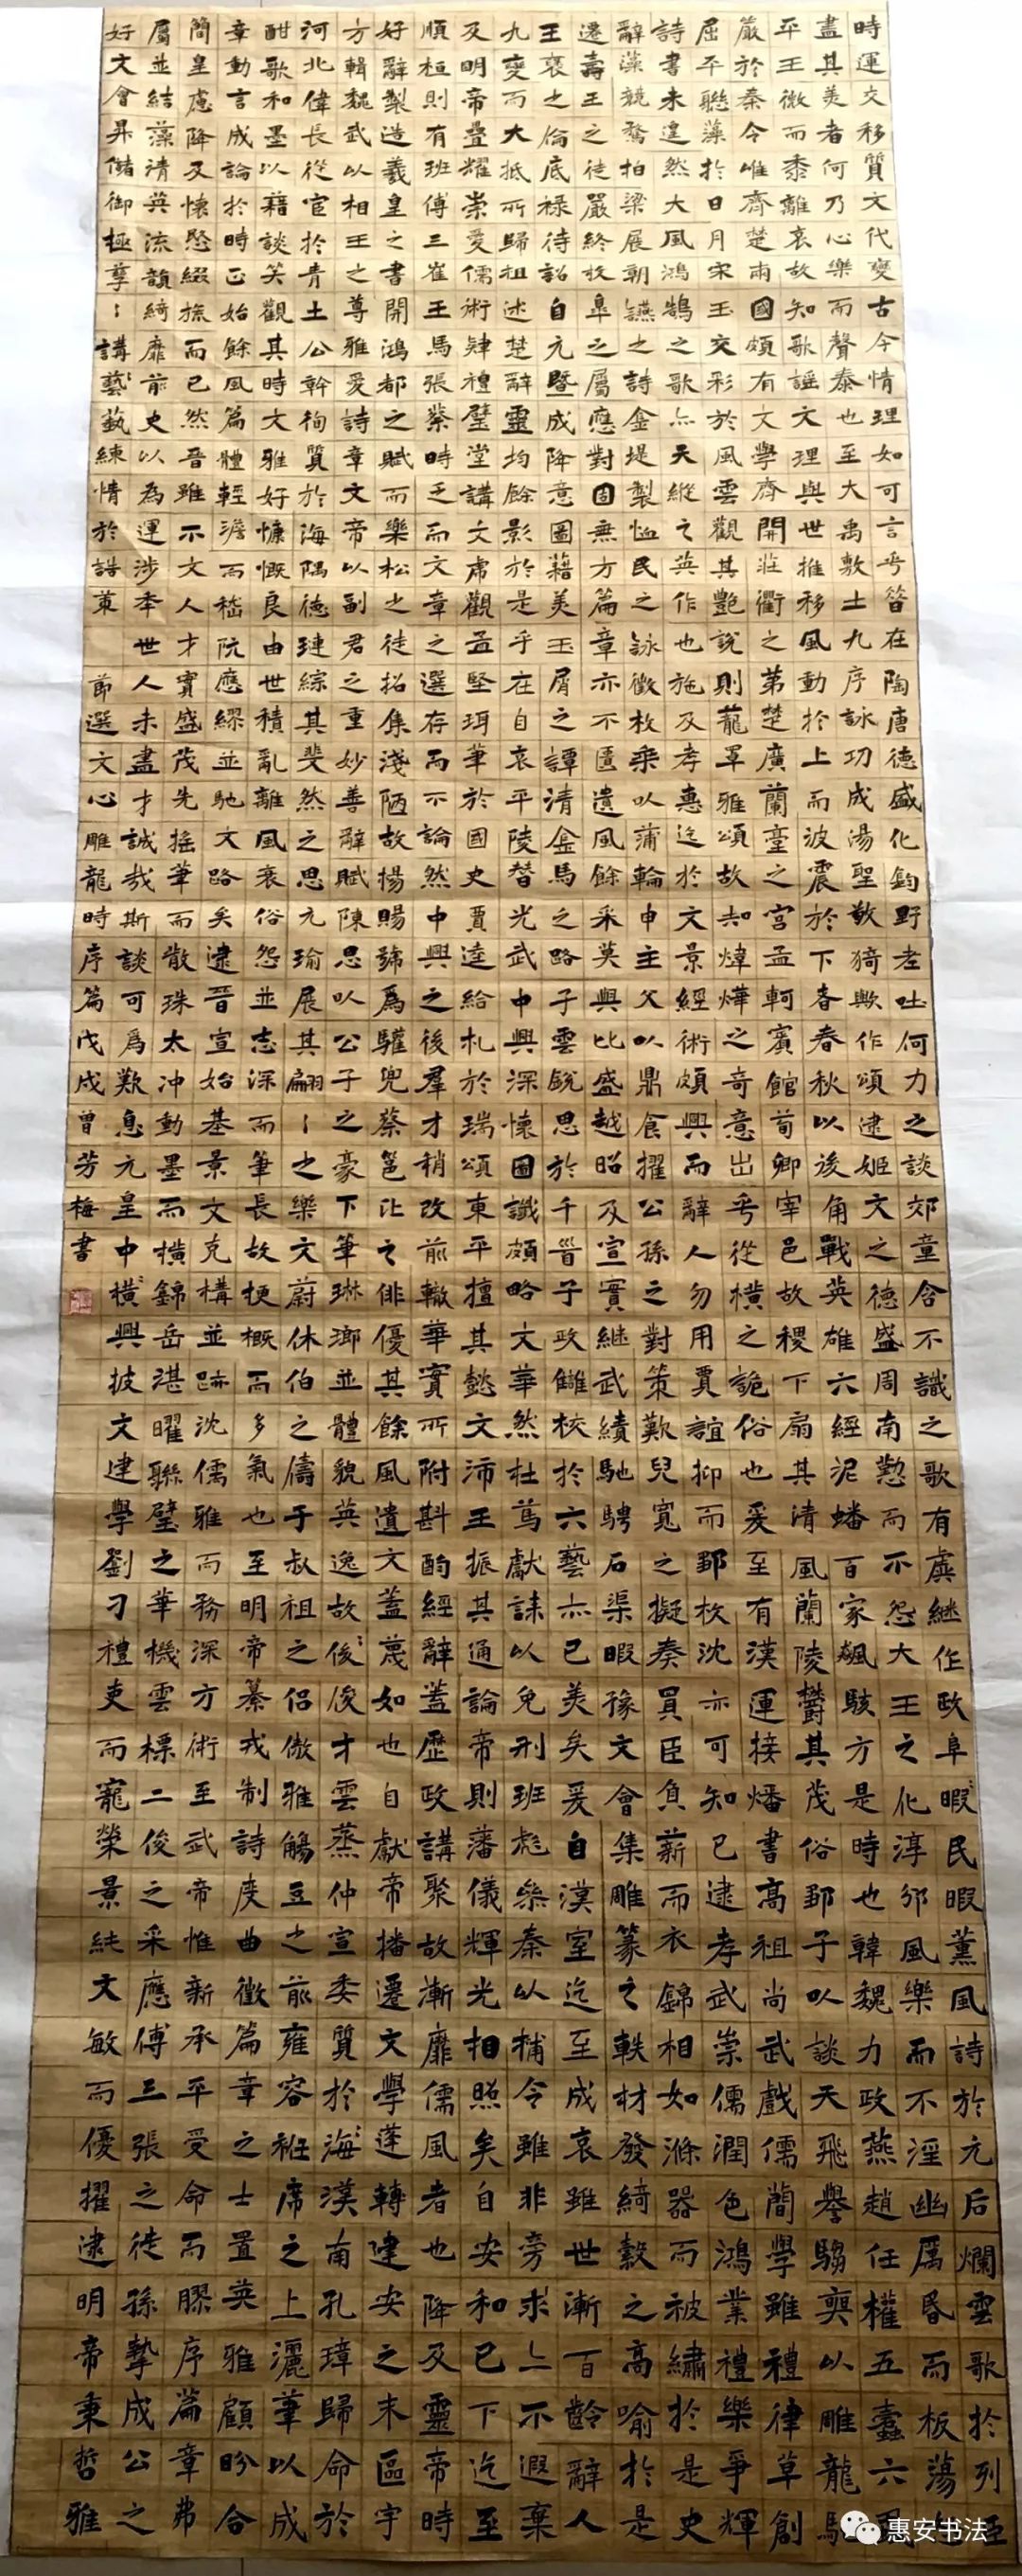 時運交移質文代變古今情理如可言乎昝在陶唐德盛化鈞野老吐何力之談郊童含不識之歌有虞繼作政阜暇民暇薰風詩於元后爛雲歌於列臣
盡其美者何乃心樂而聲泰也至大禹敷土九序詠功成湯聖敬猗歟作頌逮姬文之德盛周南懃而不怨大王之化淳邠風樂而不淫幽厲昬而板蕩
平王微而黍離哀故知歌謡文理與世推移風動於上而波震於下者春秋以後角戰英雄六經泥蟠百家飆駭方是時也韓魏力政燕趙任權五蠹六
嚴於秦令唯齊楚兩國頗有文學齊開莊衢之第楚廣蘭臺之宮孟軻賓館荀卿宰邑故稷下扇其清風蘭陵鬱其茂俗鄒子以談天飛譽騶奭以雕龍馳
屈平聯藻於日月宋玉交彩於風雲觀其艷說則蘢罩雅頌故知煒燁之奇意出乎從橫之詭俗也爰至有漢運接燔書高祖尚武戲儒簡學雖禮律草創
詩書未遑然大風鴻鵠之歌亦天縱之英作也施及孝惠迄於文景經術頗興而辭人勿用賈誼抑而鄒枚沈亦可知已逮孝武崇儒潤色鴻業禮樂爭輝
辭藻競騖柏梁展朝讌之詩金堤製恤民之詠徵枚乘以蒲輪申主父以鼎食擢公孫之對策歎兒寬之擬奏買臣負薪而衣錦相如滌器而被繡於是史
遷壽王之徒嚴終枚皐之屬應對固無方篇章亦不匱遺風餘采莫與比盛越昭及宣實繼武績馳騁石渠暇豫文會集雕篆之軼材發綺縠之高喻於是
王襃之倫底祿待詔自元暨成降意圖籍美玉屑之譚清金馬之路子雲銳思於千首子政雠校於六藝亦已美矣爰自漢室迄至成哀雖世漸百齡辭人
九變而大抵所歸祖述楚辭靈均餘影於是乎在自哀平陵替光武中興深懷圖讖頗略文華然杜篤獻誄以免刑班彪叅奏以補令雖非旁求亦不遐棄
及明帝疊耀崇愛儒術肄禮璧堂講文虎觀孟堅珥筆於國史賈逵給札於瑞頌東平擅其懿文沛王振其通論帝則藩儀輝光相照矣自安和已下迄至
順桓則有班傅三崔王馬張蔡時乏而文章之選存而不論然中興之後羣才稍改前轍華實所附斟酌經辭蓋歷政講聚故漸靡儒風者也降及靈帝時
好辭製造羲皇之書開鴻都之賦而樂松之徒招集淺陋故楊賜號爲驩兜蔡邕比之俳優其餘風遺文蓋蔑如也自獻帝播遷文學蓬轉建安之末區宇
方輯魏武以相王之尊雅愛詩章文帝以副君之重妙善辭賦陳思以公子之豪下筆琳瑯並體貌英逸故俊俊才雲蒸仲宣委質於海漢南孔璋歸命於
河北偉長從宦於青土公幹徇質於海隅德璉綜其斐然之思元瑜展其翩〻之樂文蔚休伯之儔于叔祖之侶傲雅觴豆之前雍容衽席之上灑筆以成
酣歌和墨以藉談笑觀其時文雅好慷慨良由世積亂離風衰俗怨並志深而筆長故梗概而多氣也至明帝纂戎制詩度曲徵篇章之士置英雅顧盼合
章動言成論於時正始餘風篇體輕澹而嵇阮應繆並馳文路矣逮晉宣始基景文克構並跡沈儒雅而務深方術至武帝惟新承平受命而膠序篇章弗
簡皇慮降及懷愍綴旒而已然晉雖不文人才實盛茂先搖筆而散珠太冲動墨而橫錦岳湛曜聯璧之華機雲標二俊之采應傅三張之徒孫摯成公之
屬並結藻清英流韻綺靡前史以為運涉季世人未盡才誠哉斯談可爲歎息元皇中橫興披文建學劉刁禮吏而寵榮景純文敏而優擢逮明帝秉哲雅
好文會昇儲御極孳〻講藝藝練情於誥策
節選文心雕龍時序篇戊戌曾芳梅書
惠安书法